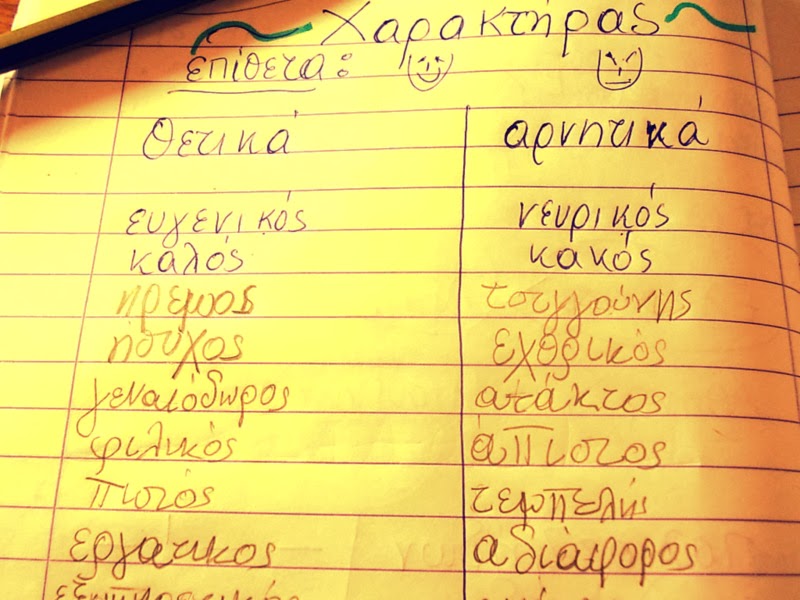 Χαρακτήρας
επίθετα:
θετικά αρνητικά
ευγενικός νευρικός
καλός κακός
ήρεμος τσιγγούνης
ήσυχος εχθρικός
γεναιόδωρος ατάκτος
φιλικός άπιστος
πιστός τεμπελής
εργατικος αδιάφορος